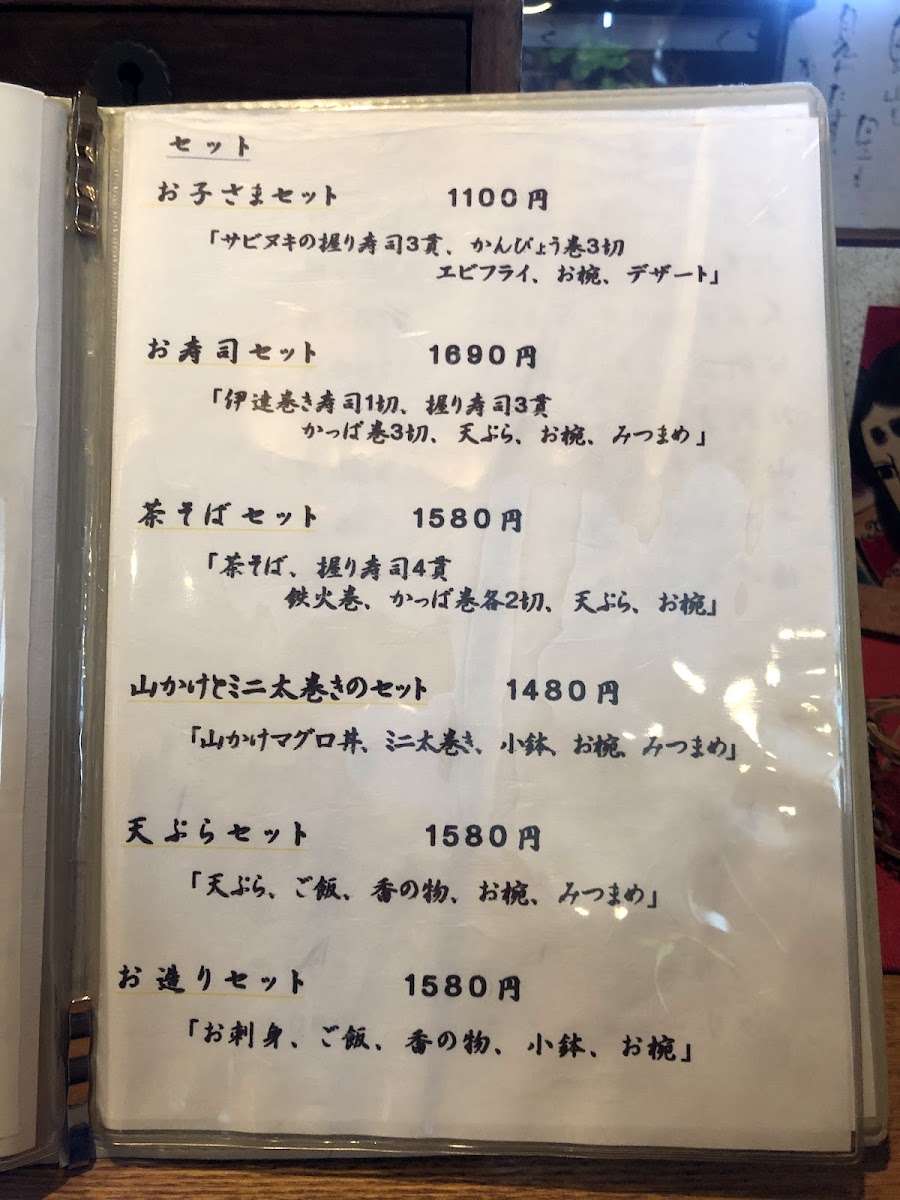 セット
お子さまセット 1100円
「サビヌキの握り寿司3貫、かんぴょう巻3切
エビフライ、お椀、デザート」
お寿司セット 1690円
「伊達巻き寿司1切、握り寿司3貫
かっぱ巻3切、天ぷら、お椀、みつまめ」
茶そばセット 1580円
「茶そば、握り寿司4貫
鉄火巻、かっぱ巻各2切、天ぷら、お椀」
山かけとミニ太巻きのセット 1480円
「山かけマグロ丼、ミニ太巻き、小鉢、お椀、みつまめ」
天ぷらセット 1580円
「天ぷら、ご飯、香の物、お椀、みつまめ」
お造りセット 1580円
「お刺身、ご飯、香の物、小鉢、お椀」